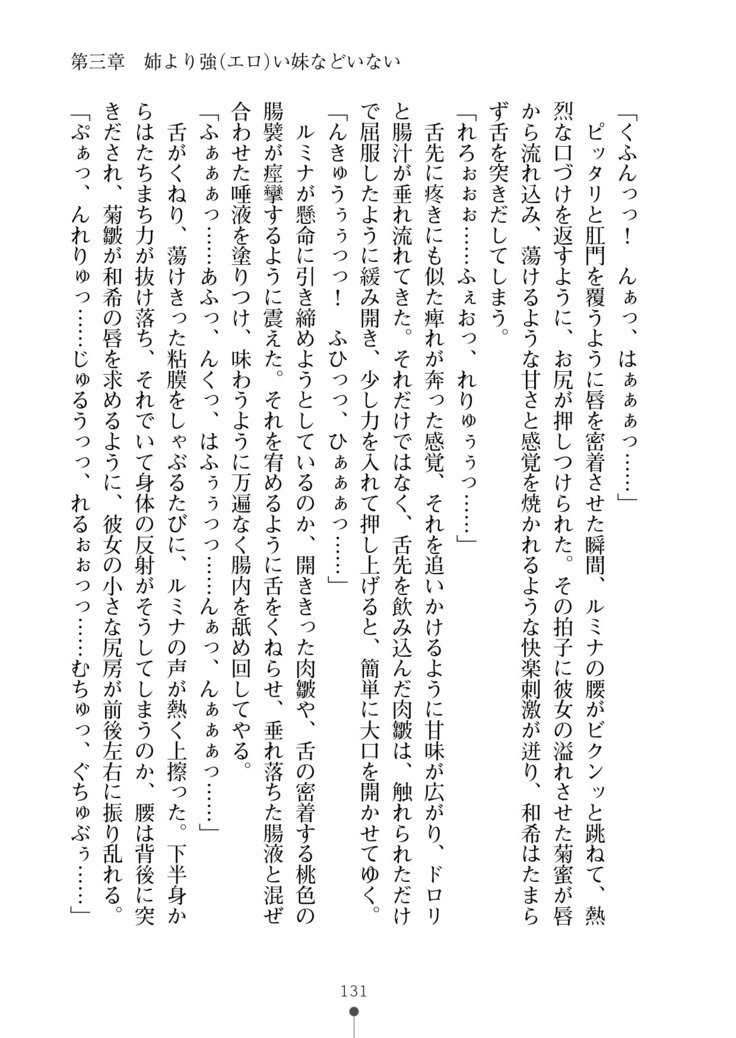 第三章　姉より強(エロ)い妹などいない
「くふんっっ！　んぁっ、はぁぁぁっ……」
　ピッタリと肛門を覆うように唇を密着させた瞬間、ルミナの腰がビクンッと跳ねて、熱
烈な口づけを返すように、お尻が押しつけられた。その拍子に彼女の溢れさせた菊蜜が唇
から流れ込み、蕩けるような甘さと感覚を焼かれるような快楽刺激が迸り、和希はたまら
ず舌を突きだしてしまう。
「れろぉぉぉ……ふぇおっ、れりゅぅぅっ……」
　舌先に疼きにも似た痺れが奔った感覚、それを追いかけるように甘味が広がり、ドロリ
と腸汁が垂れ流れてきた。それだけではなく、舌先を飲み込んだ肉皺は、触れられただけ
で屈服したように緩み開き、少し力を入れて押し上げると、簡単に大口を開かせてゆく。
「んきゅうぅぅっっ！　ふひっっ、ひぁぁぁっ……」
　ルミナが懸命に引き締めようとしているのか、開ききった肉皺や、舌の密着する桃色の
腸襞が痙攣するように震えた。それを宥めるように舌をくねらせ、垂れ落ちた腸液と混ぜ
合わせた唾液を塗りつけ、味わうように万遍なく腸内を舐め回してやる。
「ふぁぁぁっ……あふっ、んくっ、はふぅぅっっ……んぁっ、んぁぁぁっ……」
　舌がくねり、蕩けきった粘膜をしゃぶるたびに、ルミナの声が熱く上擦った。下半身か
らはたちまち力が抜け落ち、それでいて身体の反射がそうしてしまうのか、腰は背後に突
きだされ、菊皺が和希の唇を求めるように、彼女の小さな尻房が前後左右に振り乱れる。
「ぷぁっ、んれりゅっ……じゅるうっっ、れるぉぉっっ……むちゅっ、ぐちゅぶぅ……」
131